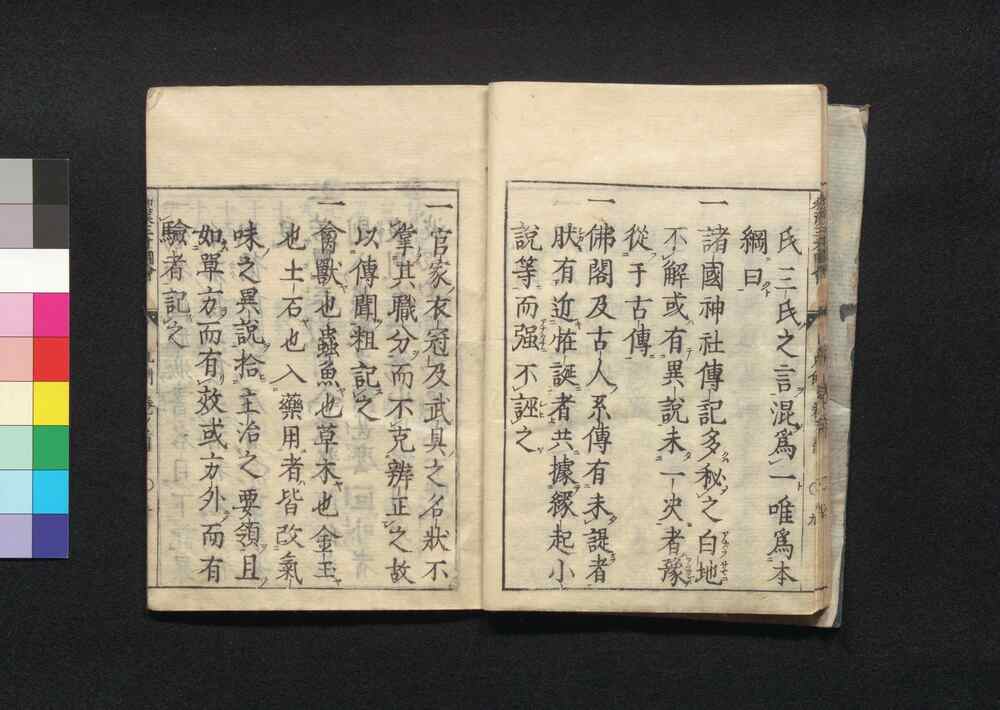 氏三氏之言混爲一唯爲本
綱曰
一諸國神社傳記多秘之白地
不解或有異說未一决者豫
從于古傳
一佛閣及古人系傳有未諟者
肰有近恠誕者共據縁起小
說等而强不誣之
一官家衣冠及武具之名狀不
掌其職分而不克辨正之故
以傳聞粗記之
一禽獸也蟲魚也草木也金玉
也土石也入藥用者皆攷氣
味之異說拾主治之要領且
如單方而有效或方外而有
驗者記之